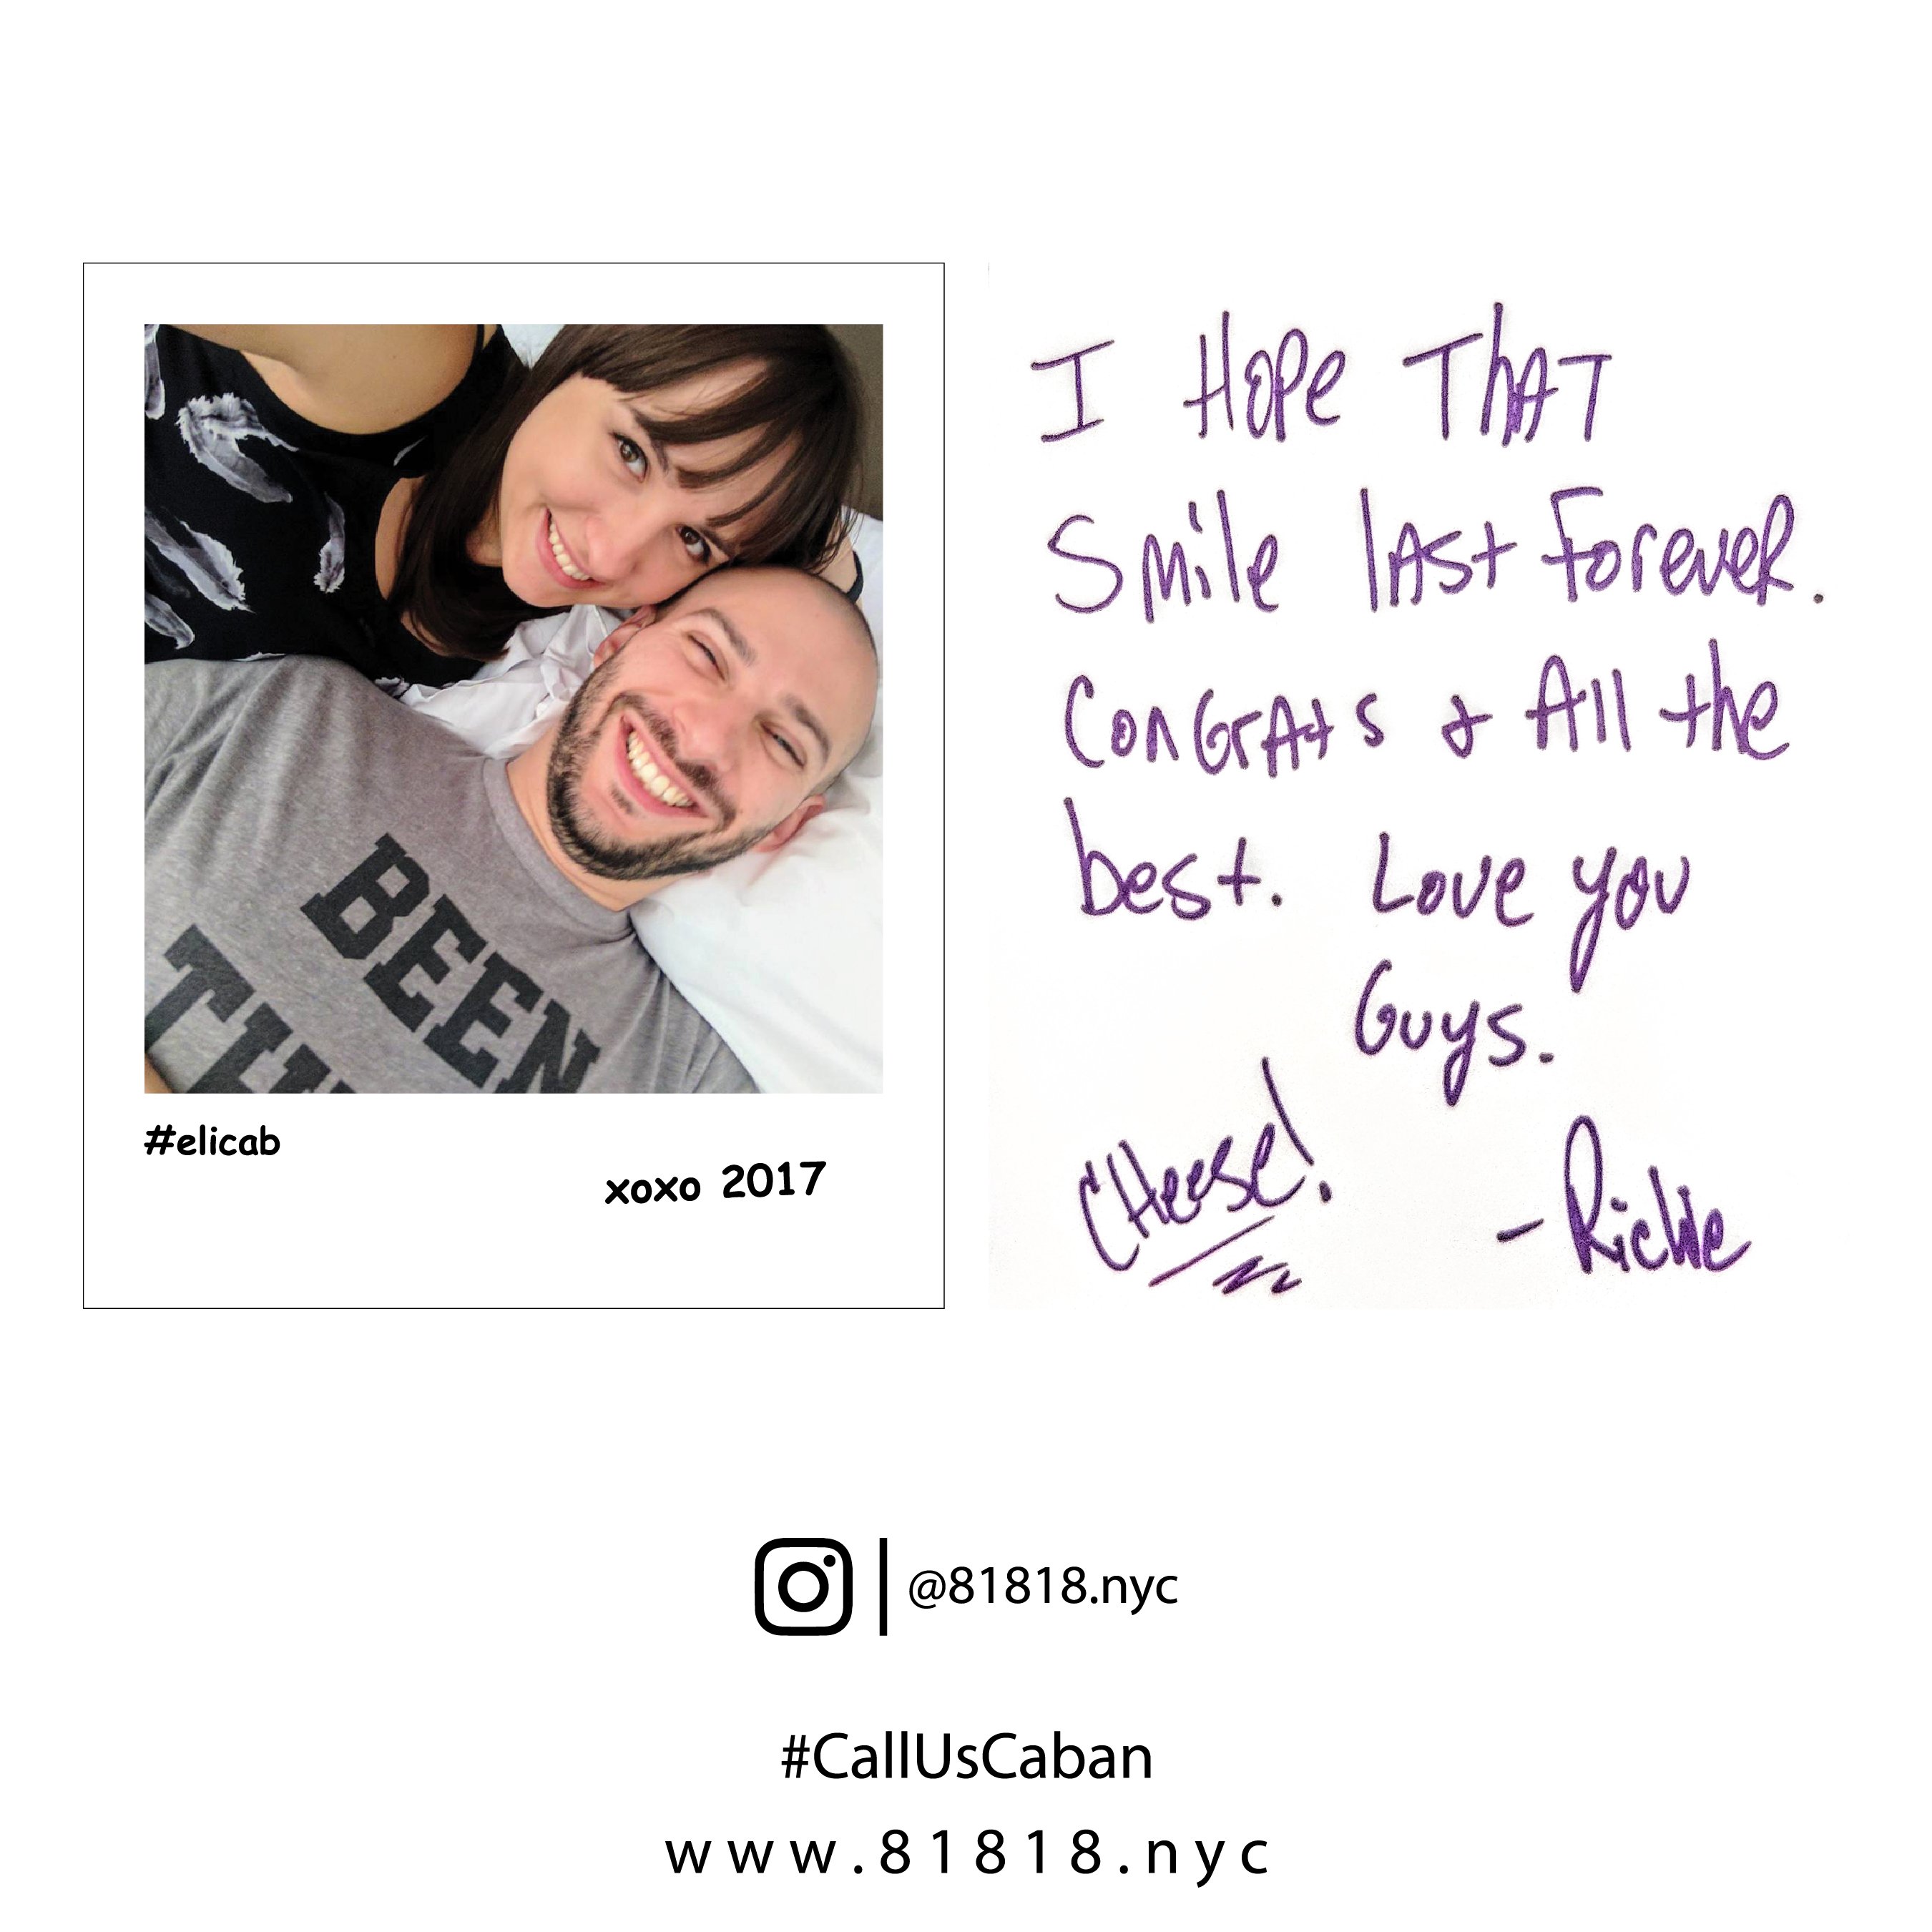 BEEN
#elicab
xoxo 2017
I Hope That
Smile last Forever.
Congrats & All the
best. Love you
Guys.
Cheese!
- Richie
@81818.nyc
#CallUsCaban
www.81818.nyc